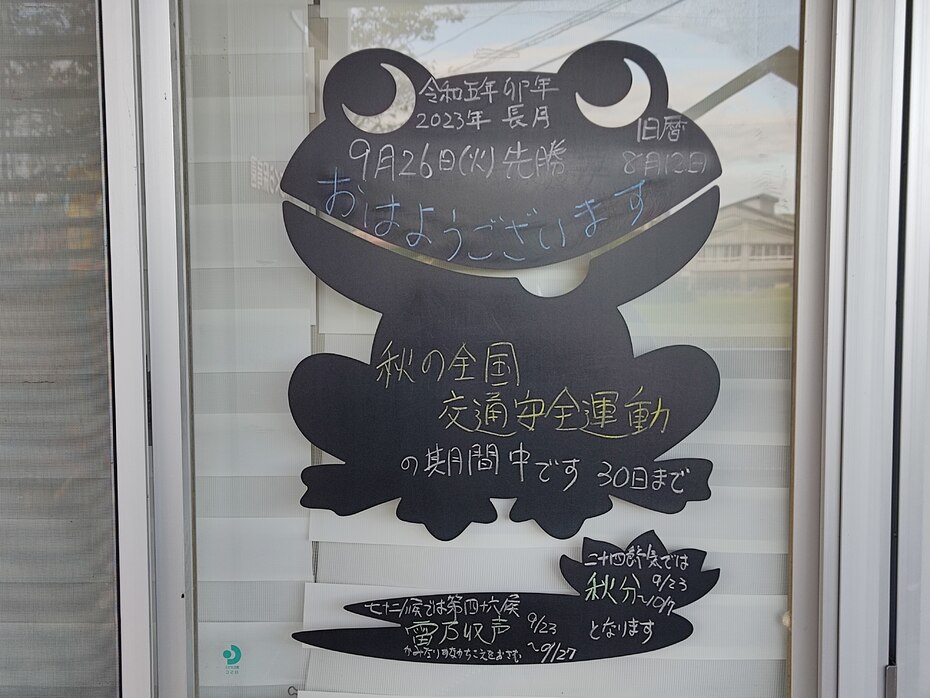 令和五年 卯年
2023年 長月
旧暦
9月26日(火) 先勝
8月12日
おはようございます
秋の全国
交通安全運動
の期間中です 30日まで
二十四節気では
秋分 9/23
~10/7
となります
七十二候では第四十六候
雷乃収声 9/23
かみなりすなわちこえをおさむ ~9/27